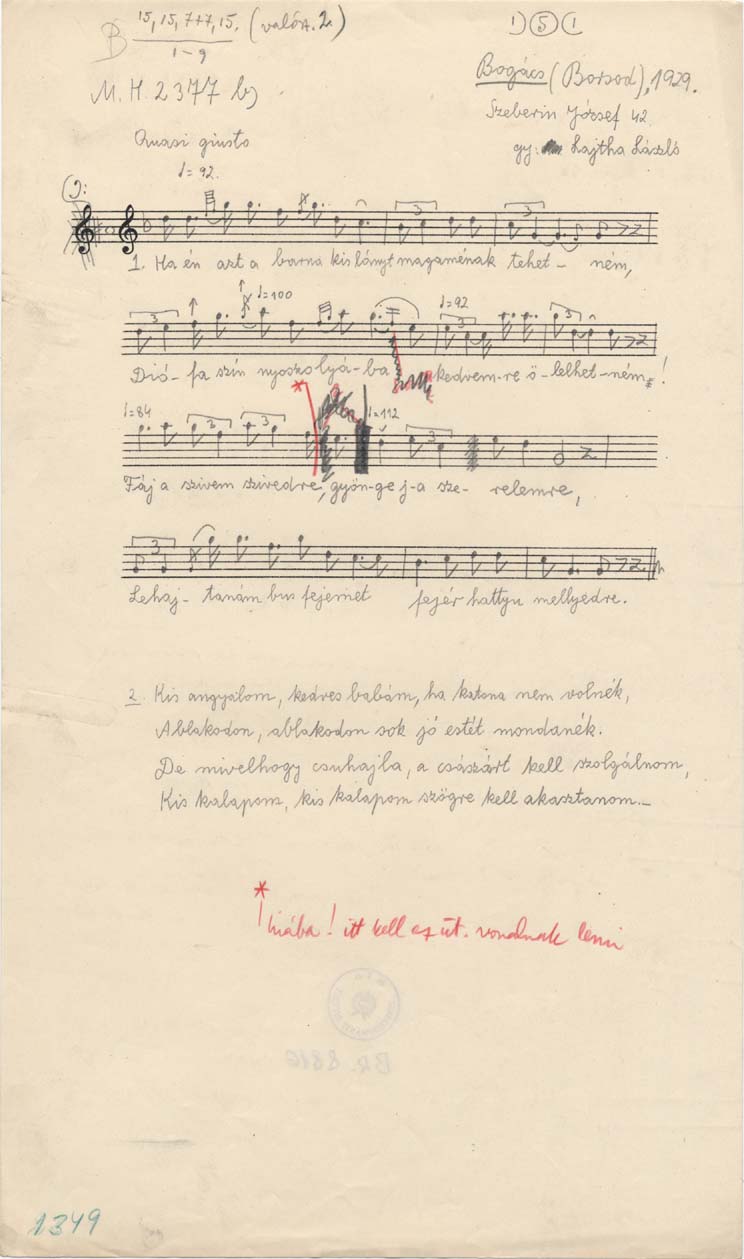 B 15, 15, 7+7, 15. (valós. 2.)
1-9
1) 5 (1
M. H. 2377 b)
Bogács (Borsod), 1929.
Szeberin József 42.
gy: Lajtha László
Quasi giusto
♩= 92.
1. Ha én azt a barna kis lányt magaménak tehet- ném,
♩=100 ♩=92
Dió- fa szín nyoszolyá-ba kedvem-re ö-lelhet-ném!
♩=84 * ♩=112
Fáj a szivem szivedre, gyön-ge j-a sze- relemre,
Lehaj- tanám bus fejemet fejér hattyu mellyedre.
2. Kis angyalom, kedves babám, ha katona nem volnék,
Ablakodon, ablakodon sok jó estét mondanék.
De mivelhogy csuhajla, a császárt kell szolgálnom,
Kis kalapom, kis kalapom szögre kell akasztanom.-
*
hiába! itt kell az üt. vonalnak lenni
1349